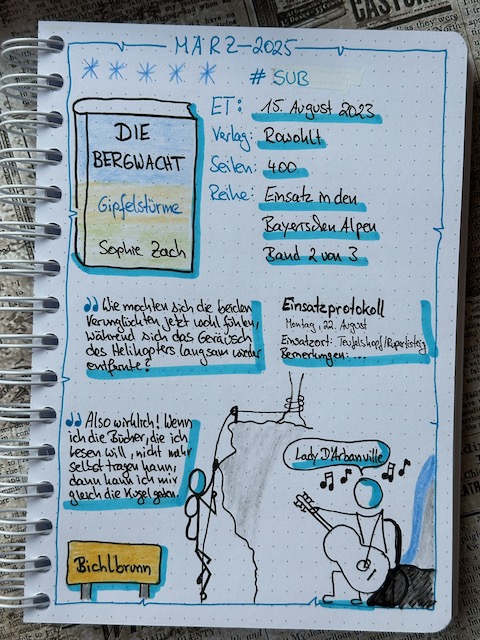 MÄRZ-2025
# SUB
DIE
BERGWACHT
Gipfelstürme
Sophie Zach
ET: 15. August 2023
Verlag: Rowohlt
Seiten: 400
Reihe: Einsatz in den
Bayerischen Alpen
Band 2 von 3
"Wie mochten sich die beiden
Verunglückten jetzt wohl fühlen,
während sich das Geräusch
des Helikopters langsam wieder
entfernte?
Einsatzprotokoll
Montag, 22. August
Einsatzort: Teufelskopf/Rupertisteig
Bemerkungen: ...
"Also wirklich! Wenn
ich die Bücher, die ich
lesen will, nicht mehr
selbst tragen kann,
dann kann ich mir
gleich die Kugel geben.
Lady D'Arbanville
Bichlbrunn